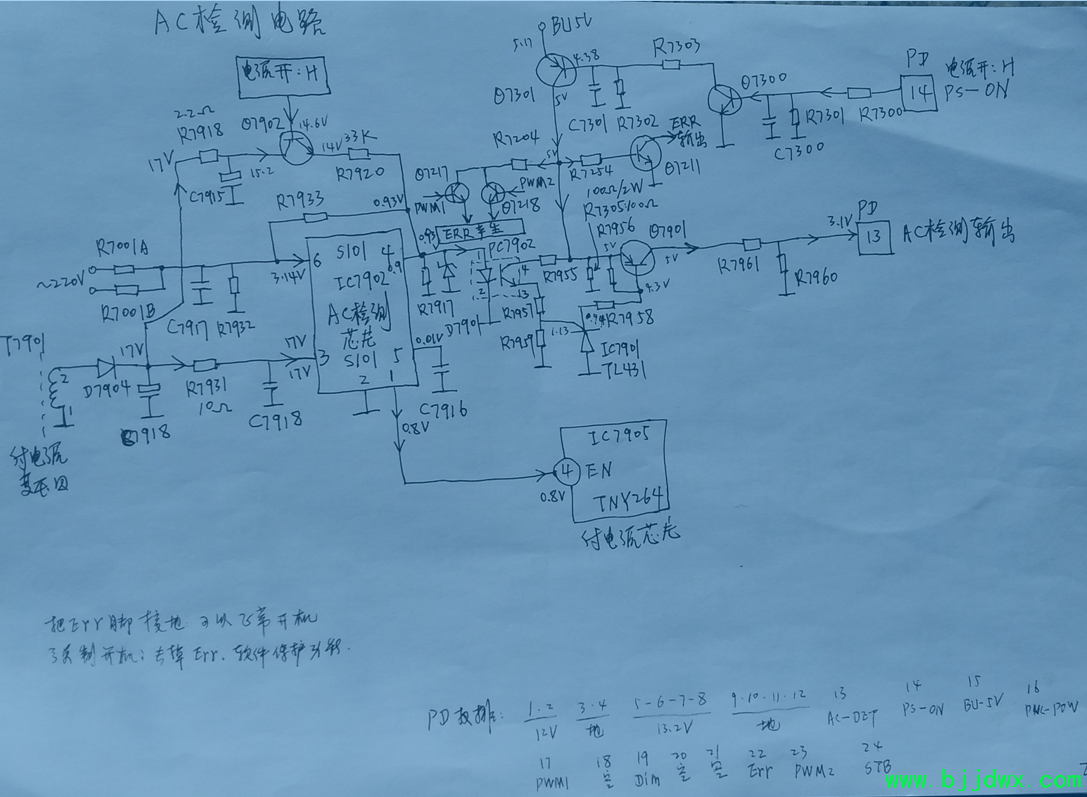 AC检测电路
BU5V
5.17
4.38
R7303
Q7301
5V
C7301
R7302
Q7300
C7300
R7301
R7300
PD
14
电源开:H
PS-ON
电源开:H
2.2Ω
R7918
Q7902
14.6V
17V
15.2
C7915
14V
33K
R7920
R7933
0.93V
R7204
5V
Q7217
PWM1
Q7218
PWM2
R7254
100Ω/2W
Q7211
ERR
输出
R7305:100Ω
R7956
ERR
PC7902
R7001A
~220V
R7001B
C7917
R7932
3.14V
6
S101
4
IC7902
AC检测
芯片
S101
3
2
5
1
0.9
0.93
R7917
D7901
0.01V
C7916
1
2
3
4
R7955
R7957
R7959
1.13
5V
Q7901
5V
4.3V
R7958
IC7901
TL431
R7961
R7960
3.1V
PD
13
AC检测输出
T7901
2
1
D7904
17V
C7918
R7931
10Ω
C7918
17V
17V
付电源
变压器
0.8V
0.8V
4
EN
IC7905
TNY264
付电源芯片
把Err脚接地 可以正常开机
强制开机:去掉Err.软件保护
PD
1·2
12V
3·4
地
5-6-7-8
13.2V
9·10·11·12
地
13
AC-DET
14
PS-ON
15
BU-5V
16
17
PWM1
18
空
19
Dim
20
空
21
空
22
Err
23
PWM2
24
STB
www.bjjdwx.com